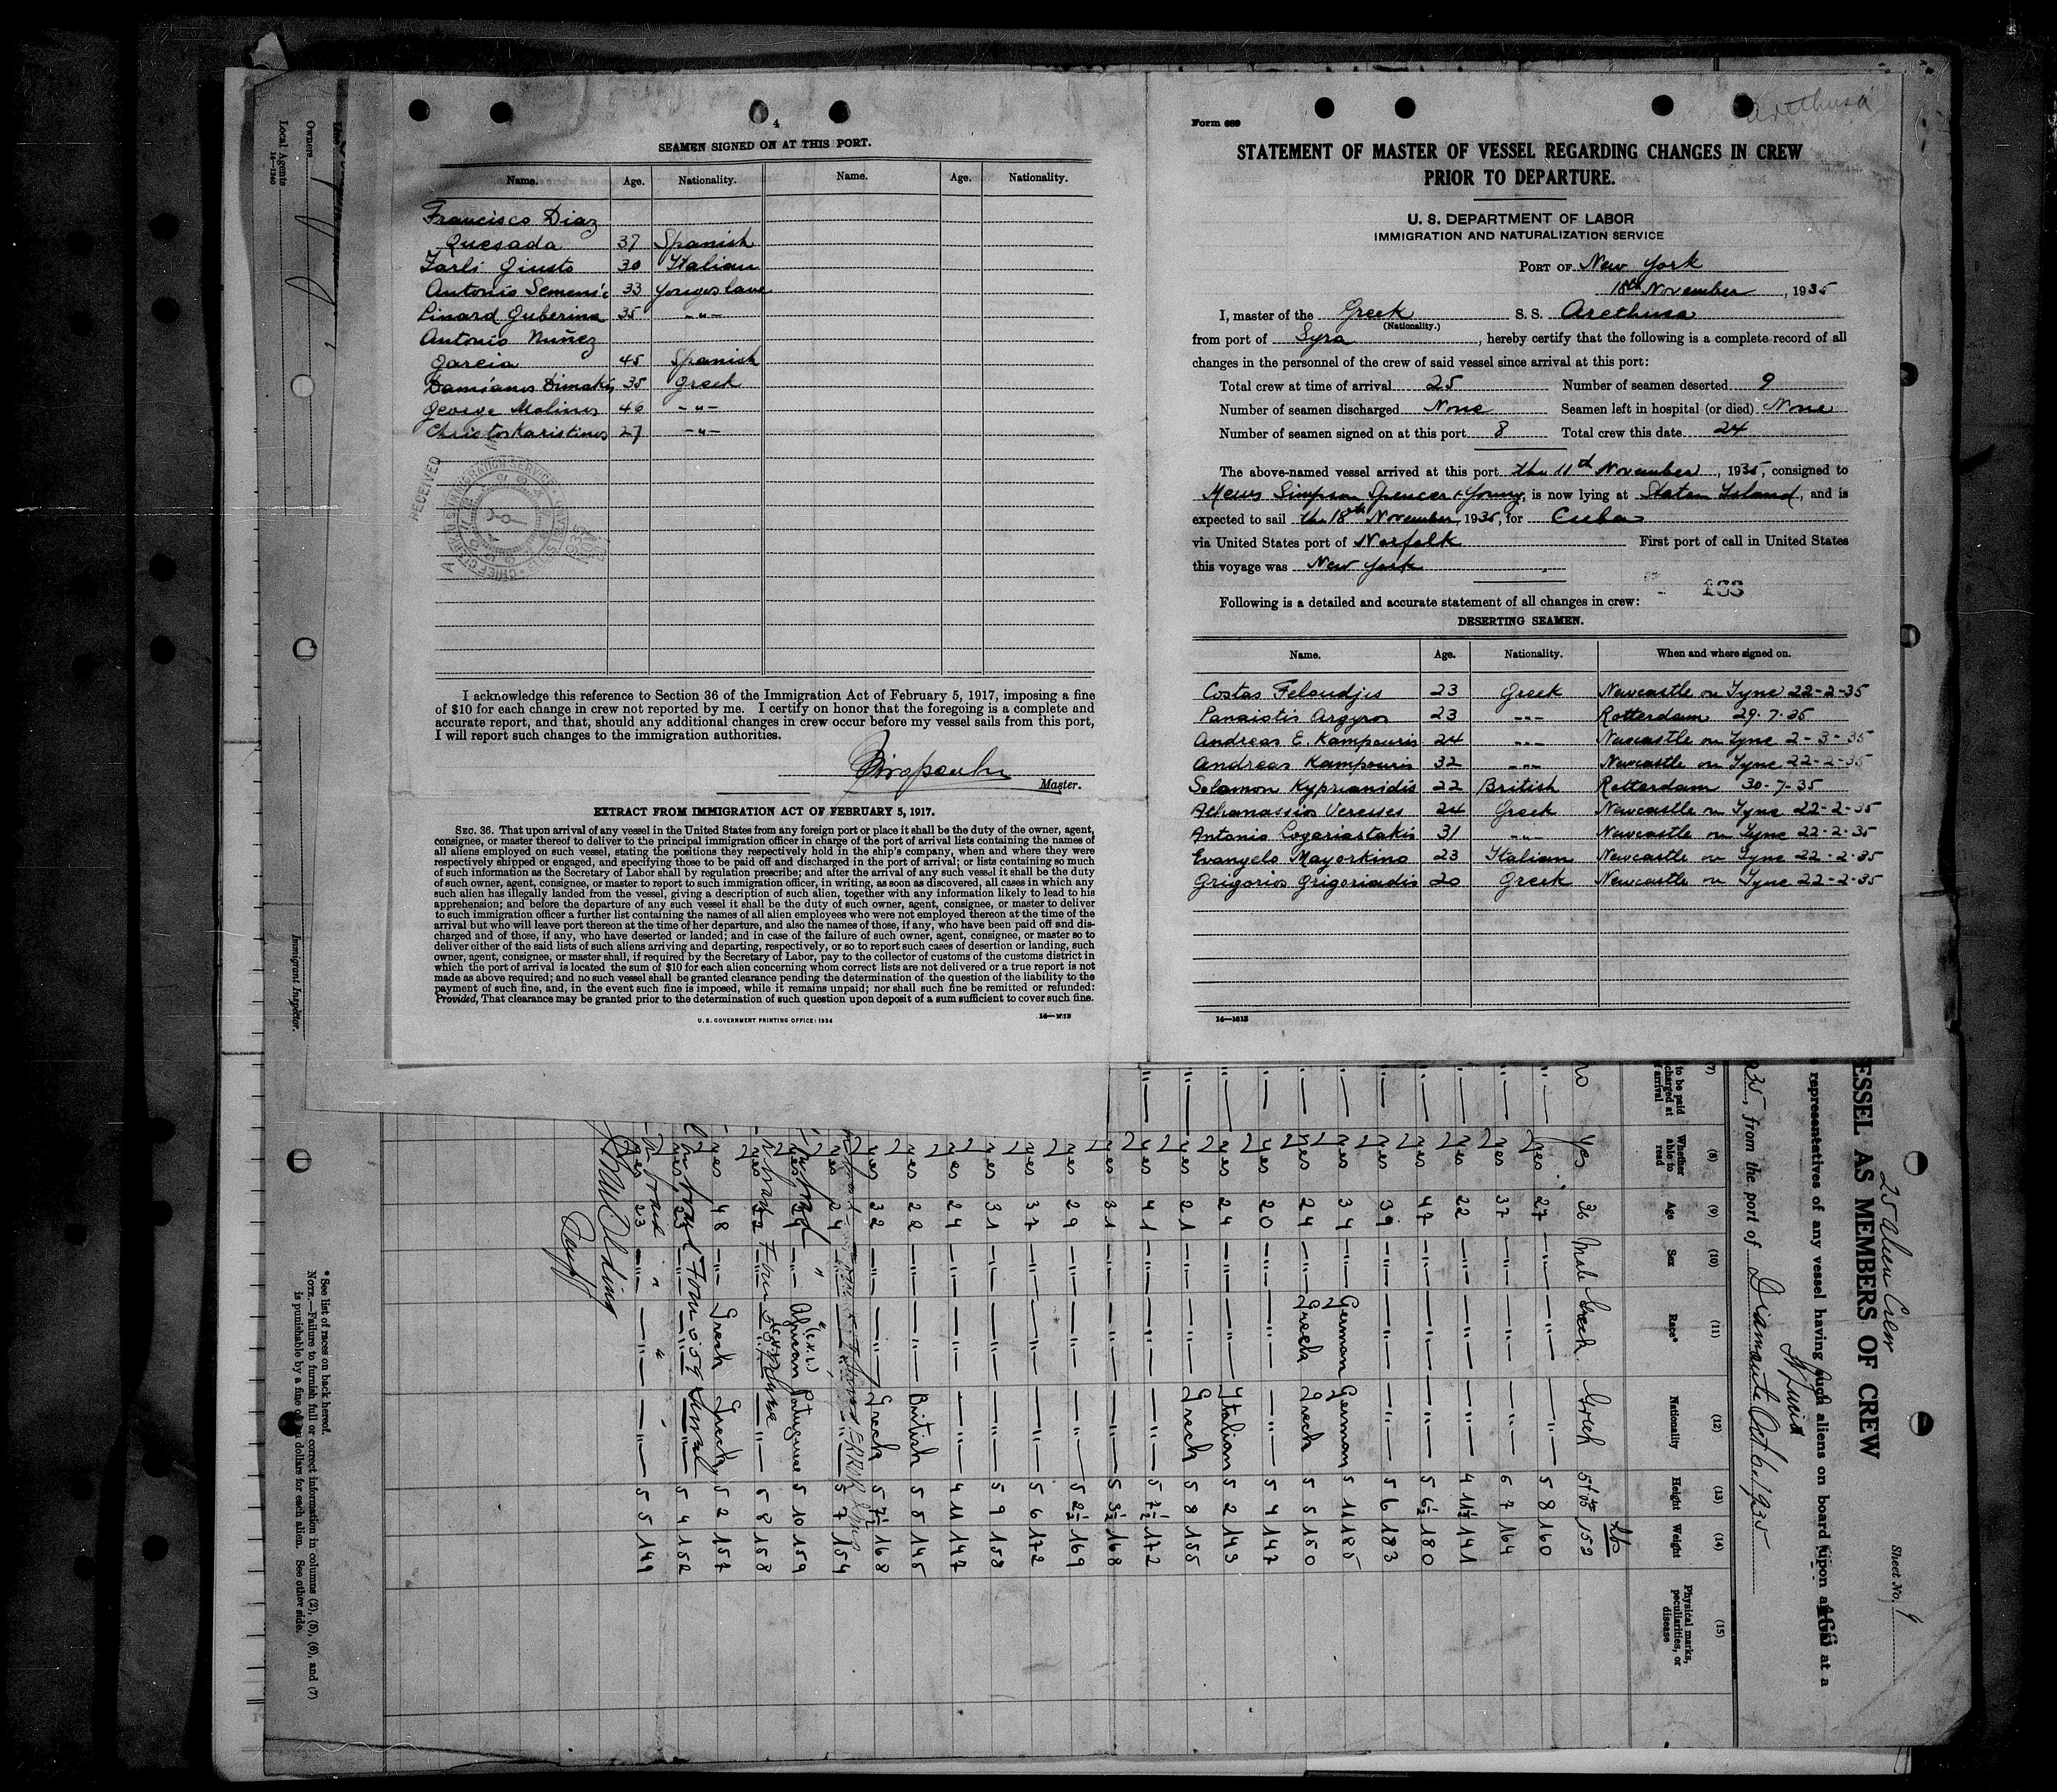 4
SEAMEN SIGNED ON AT THIS PORT.
Name. Age. Nationality. Name. Age. Nationality.
Francisco Diaz
Quesada 37 Spanish
Giusto 30 Italian
Antonio 33 Yougoslave
Linard Guberina 35 -"-
Antonio Nuñez
Garcia 45 Spanish
Damianos Dimakis 35 Greek
George Molinos 46 -"-
Christos Karistinos 27 -"-
RECEIVED
I acknowledge this reference to Section 36 of the Immigration Act of February 5, 1917, imposing a fine
of $10 for each change in crew not reported by me. I certify on honor that the foregoing is a complete and
accurate report, and that, should any additional changes in crew occur before my vessel sails from this port,
I will report such changes to the immigration authorities.
Master.
EXTRACT FROM IMMIGRATION ACT OF FEBRUARY 5, 1917.
SEC. 36. That upon arrival of any vessel in the United States from any foreign port or place it shall be the duty of the owner, agent,
consignee, or master thereof to deliver to the principal immigration officer in charge of the port of arrival lists containing the names of
all aliens employed on such vessel, stating the positions they respectively hold in the ship's company, when and where they were
respectively shipped or engaged, and specifying those to be paid off and discharged in the port of arrival; or lists containing so much
of such information as the Secretary of Labor shall by regulation prescribe; and after the arrival of any such vessel it shall be the duty
of such owner, agent, consignee, or master to report to such immigration officer, in writing, as soon as discovered, all cases in which any
such alien has illegally landed from the vessel, giving a description of such alien, together with any information likely to lead to his
apprehension; and before the departure of any such vessel it shall be the duty of such owner, agent, consignee, or master to deliver
to such immigration officer a further list containing the names of all alien employees who were not employed thereon at the time of the
arrival but who will leave port thereon at the time of her departure, and also the names of those, if any, who have been paid off and dis-
charged and of those, if any, who have deserted or landed; and in case of the failure of such owner, agent, consignee, or master so to
deliver either of the said lists of such aliens arriving and departing, respectively, or so to report such cases of desertion or landing, such
owner, agent, consignee, or master shall, if required by the Secretary of Labor, pay to the collector of customs of the customs district in
which the port of arrival is located the sum of $10 for each alien concerning whom correct lists are not delivered or a true report is not
made as above required; and no such vessel shall be granted clearance pending the determination of the question of the liability to the
payment of such fine, and, in the event such fine is imposed, while it remains unpaid; nor shall such fine be remitted or refunded:
Provided, That clearance may be granted prior to the determination of such question upon deposit of a sum sufficient to cover such fine.
U. S. GOVERNMENT PRINTING OFFICE: 1934
Arethusa
Form 689
STATEMENT OF MASTER OF VESSEL REGARDING CHANGES IN CREW
PRIOR TO DEPARTURE.
U. S. DEPARTMENT OF LABOR
IMMIGRATION AND NATURALIZATION SERVICE
PORT OF New York
18th November, 1935
I, master of the Greek S. S. Arethusa
(Nationality.)
from port of Syra, hereby certify that the following is a complete record of all
changes in the personnel of the crew of said vessel since arrival at this port:
Total crew at time of arrival 25 Number of seamen deserted 9
Number of seamen discharged None Seamen left in hospital (or died) None
Number of seamen signed on at this port 8 Total crew this date 24
The above-named vessel arrived at this port the 11th November, 1935, consigned to
Simpson Spencer & Young, is now lying at Staten Island, and is
expected to sail the 18th November, 1935, for Cuba
via United States port of Norfolk First port of call in United States
this voyage was New York
133
Following is a detailed and accurate statement of all changes in crew:
DESERTING SEAMEN.
Name. Age. Nationality. When and where signed on.
Costas Feloudjis 23 Greek Newcastle on Tyne 22-2-35
Panaiotis Argyros 23 -"- Rotterdam 29.7.35
Andreas E. Kampouris 24 -"- Newcastle on Tyne 2-3-35
Andreas Kampouris 32 -"- Newcastle on Tyne 22-2-35
Solomon Kyprianidis 22 British Rotterdam 30-7-35
Athanassios Veresses 24 Greek Newcastle on Tyne 22-2-35
Antonio Logariastakis 31 -"- Newcastle on Tyne 22-2-35
Evangelo Mayorkino 23 Italian Newcastle on Tyne 22-2-35
Grigorios Grigoriadis 20 Greek Newcastle on Tyne 22-2-35
Owners
Local Agents
14-1240
Immigrant Inspector.
Sheet No. 9
25 alien Crew
ESSEL AS MEMBERS OF CREW
representatives of any vessel having such aliens on board upon arrival at a
St Lucia
935, from the port of Diamante Oct. 6. 1935
(7) (8) (9) (10) (11) (12) (13) (14) (15)
to be paid
charged at
arrival
Whether
able to
read
Age
Sex
Race*
Nationality
Height
Weight
Physical marks,
peculiarities, or
disease
no Yes 36 Male Greek Greek 152
yes 27 5 8 160
yes 37 6 7 164
yes 22 4 11½ 141
yes 47 5 6½ 180
yes 39 5 6 183
yes 34 German German 5 11 185
yes 24 Greek Greek 5 5 150
yes 20 5 4 147
yes 24 Italian 5 2 143
yes 21 Greek 5 8 155
yes 41 5 7½ 172
yes 31 5 3½ 168
yes 29 5 2½ 169
yes 37 5 6 172
yes 31 5 9 158
yes 24 4 11 147
yes 22 British 5 5 145
yes 32 Greek 5 7½ 168
yes 24 5 7 154
yes 29 African Portuguese 5 10 159
yes 32 5 8 158
yes 48 Greek Greek 5 2 157
yes 33 5 4 152
yes 23 5 5 149
* See list of races on back hereof.
NOTE.—Failure to furnish full or correct information in columns (2), (5), (6), and (7)
is punishable by a fine of ten dollars for each alien. See other side.